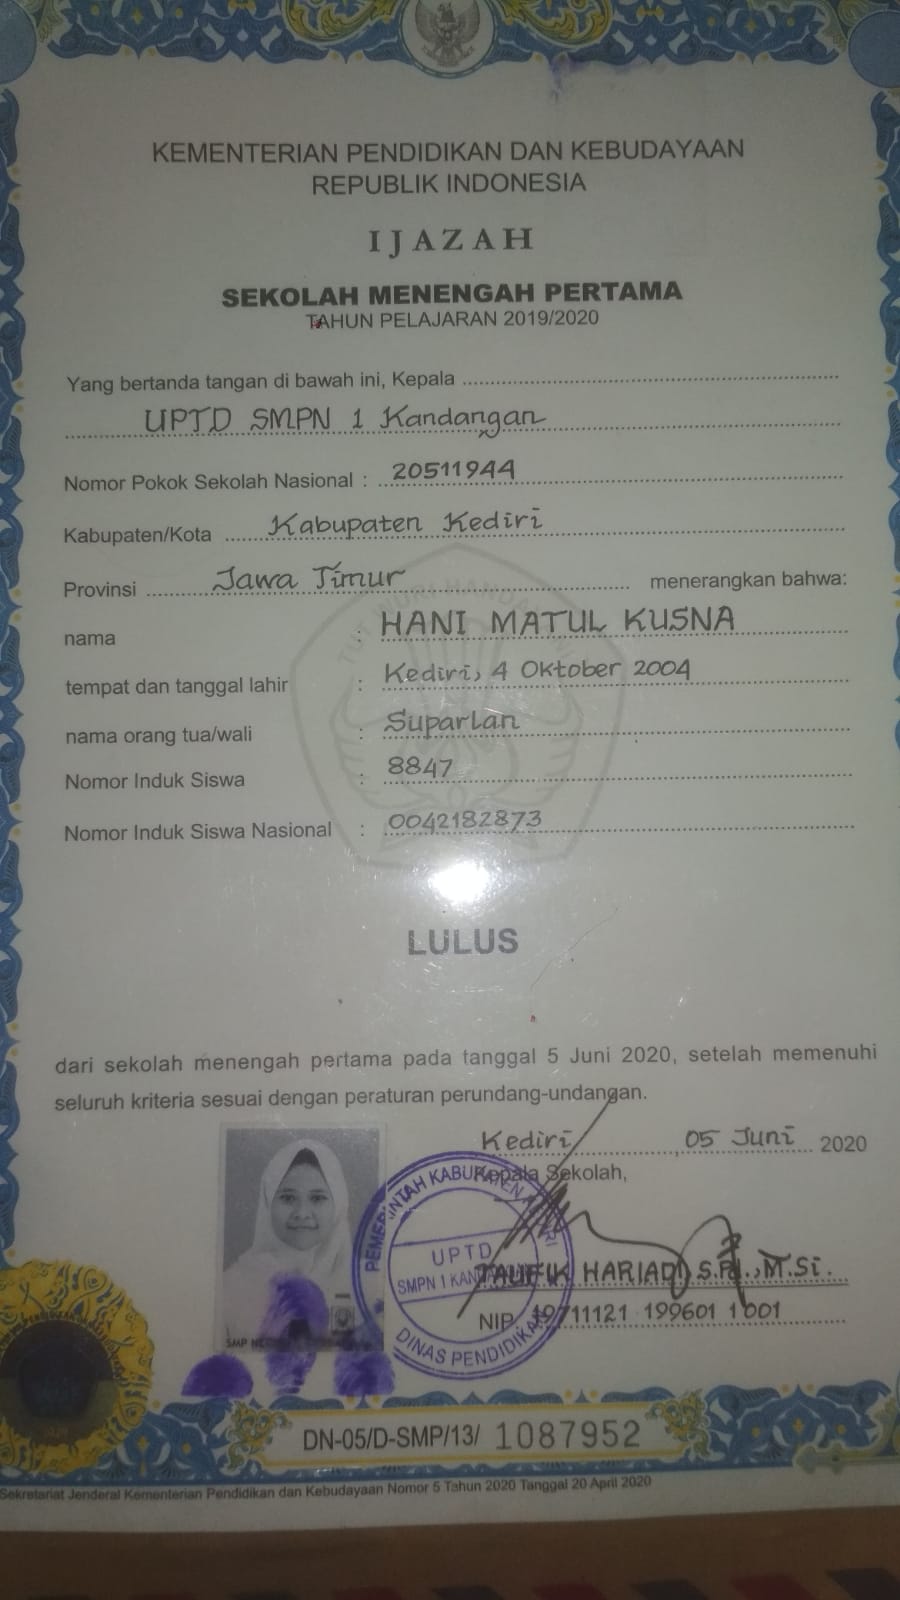 KEMENTERIAN PENDIDIKAN DAN KEBUDAYAAN
REPUBLIK INDONESIA
IJAZAH
SEKOLAH MENENGAH PERTAMA
TAHUN PELAJARAN 2019/2020
Yang bertanda tangan di bawah ini, Kepala
UPTD SMPN 1 Kandangan
Nomor Pokok Sekolah Nasional : 20511944
Kabupaten/Kota Kabupaten Kediri
Provinsi Jawa Timur menerangkan bahwa:
nama : HANI MATUL KUSNA
tempat dan tanggal lahir : Kediri, 4 Oktober 2004
nama orang tua/wali : Suparlan
Nomor Induk Siswa : 8847
Nomor Induk Siswa Nasional : 0042182873
TUT WURI HANDAYANI
LULUS
dari sekolah menengah pertama pada tanggal 5 Juni 2020, setelah memenuhi
seluruh kriteria sesuai dengan peraturan perundang-undangan.
Kediri, 05 Juni 2020
Kepala Sekolah,
PEMERINTAH KABUPATEN KEDIRI
UPTD
SMPN 1 KANDANGAN
DINAS PENDIDIKAN
TAUFIK HARIADI S.Pd., M.Si.
NIP. 19711121 199601 1 001
SMP
DN-05/D-SMP/13/ 1087952
Sekretariat Jenderal Kementerian Pendidikan dan Kebudayaan Nomor 5 Tahun 2020 Tanggal 20 April 2020